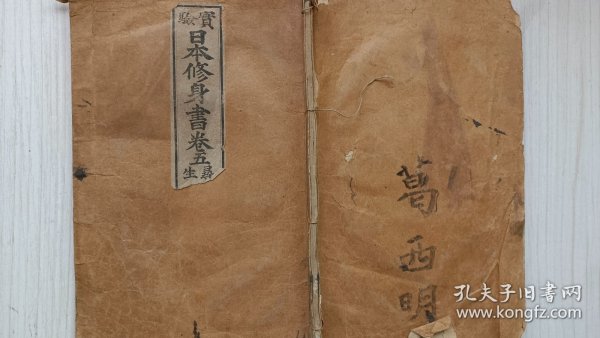 實驗
日本修身書卷五
尋生
葛西明
孔夫子旧書网
www.kongfz.com